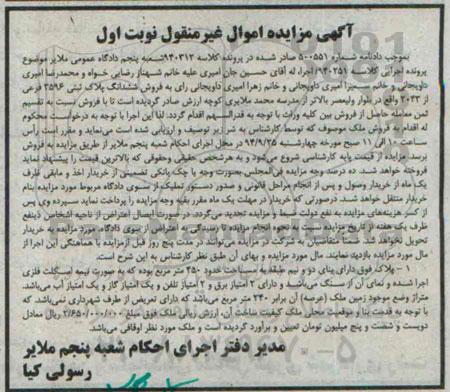 آگهی مزایده اموال غیرمنقول نوبت اول
بموجب دادنامه شماره ۵۰۰۵۵۱ صادر شده در پرونده کلاسه ۹۴۰۳۱۲شعبه پنجم دادگاه عمومی ملایر موضوع
پرونده اجرائی کلاسه ۹۴۰۲۵۱/اجرا، له آقای حسین جان امیری علیه خانم شهناز رضایی خواه و محمدرضا امیری
داویجانی و خانم امیری داویجانی و خانم زهرا امیری داویجانی رای به فروش ششدانگ پلاک ثبتی ۳۵۹۶ فرعی
از ۲۰۳۳ واقع در بلوار ولیعصر بالاتر از مدرسه محمد ملایری کوچه ارزش صادر گردیده است تا با فروش نسبت به تقسیم
ثمن معامله حاصل از فروش بین کلیه وراث با توجه به قدرالسهم اقدام گردد. لذا این اجرا با توجه به درخواست محکوم
له اقدام به فروش ملک موصوف که توسط کارشناس به شرح زیر توصیف و ارزیابی شده است می‌نماید و مقرر است رأس
ساعت ۱۰ الی ۱۱ صبح مورخه چهارشنبه ۹۴/۹/۲۵ در محل اجرای احکام شعبه پنجم ملایر از طریق مزایده به فروش
برسد. مزایده از قیمت پایه کارشناسی شروع می‌شود و به هر شخص حقیقی وحقوقی که بالاترین قیمت را پیشنهاد نماید
فروخته خواهد شد. ده درصد وجه مزایده فی‌المجلس بصورت وجه یا چک بانکی تضمینی از خریدار اخذ و مابقی ظرف
یک ماه از خریدار وصول و پس از انجام مراحل قانونی و صدور دستور تملیک از سوی دادگاه مربوط مورد مزایده بنام
خریدار منتقل خواهد شد. درصورتی که خریدار در مهلت یک ماه مقرر بقیه وجه مزایده را پرداخت نماید سپرده وی پس
از کسر هزینه‌های مزایده به نفع دولت ضبط و مزایده تجدید می‌گردد. در صورت ایصال اعتراض از ناحیه اشخاص ذینفع
ظرف یک هفته از تاریخ مزایده نسبت به نحوه انجام مزایده تا رسیدگی به اعتراض از سوی دادگاه مورد مزایده به خریدار
تحویل نخواهد شد. ضمناً متقاضیان به شرکت در مزایده می‌توانند در مدت پنج روز قبل از مزایده با هماهنگی این اجرا از
مال مورد مزایده بازدید نمایند. مال مورد مزایده و بهای آن طبق نظر کارشناس به این شرح است.
۱ - پلاک فوق دارای بنای دو و نیم طبقه به مساحت حدود ۴۵۰ متر مربع بوده که به صورت نیمه اسکلت فلزی
اجرا شده و نمای آن از سنگ می‌باشد و دارای ۲ امتیاز برق و ۲ امتیاز تلفن و یک امتیاز گاز و یک امتیاز آب می‌باشد.
متراژ وضع موجود زمین ملک (عرصه) آن برابر ۲۴۰ متر مربع می‌باشد که دارای تعریض از طرف شهرداری نمی‌باشد. که
با توجه به قدمت بنا و موقعیت محلی ملک کیفیت ساخت آن، ارزش ریالی ملک فوق مبلغ ۲/۶۵۰/۰۰۰/۰۰۰ ریال معادل
دویست و شصت و پنج میلیون تومان تعیین و برآورد گردیده است و ملک مورد نظر اوقافی می‌باشد.
مدیر دفتر اجرای احکام شعبه پنجم ملایر
رسولی کیا